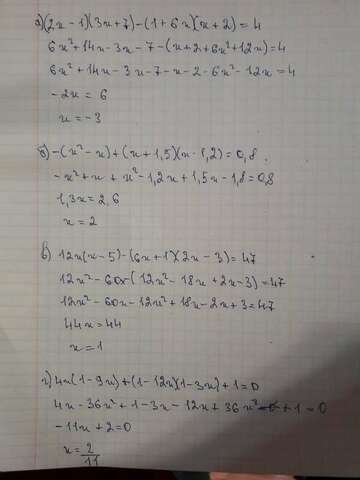 а) (2x - 1)(3x + 7) - (1 + 6x)(x + 2) = 4
6x² + 14x - 3x - 7 - (x + 2 + 6x² + 12x) = 4
6x² + 14x - 3x - 7 - x - 2 - 6x² - 12x = 4
- 2x = 6
x = - 3
б) - (x² - x) + (x + 1,5)(x - 1,2) = 0,8
- x² + x + x² - 1,2x + 1,5x - 1,8 = 0,8
1,3x = 2,6
x = 2
в) 12x(x - 5) - (6x + 1)(2x - 3) = 47
12x² - 60x - (12x² - 18x + 2x - 3) = 47
12x² - 60x - 12x² + 18x - 2x + 3 = 47
44x = 44
x = 1
г) 4x(1 - 9x) + (1 - 12x)(1 - 3x) + 1 = 0
4x - 36x² + 1 - 3x - 12x + 36x² + 1 = 0
- 11x + 2 = 0
x = 2/11